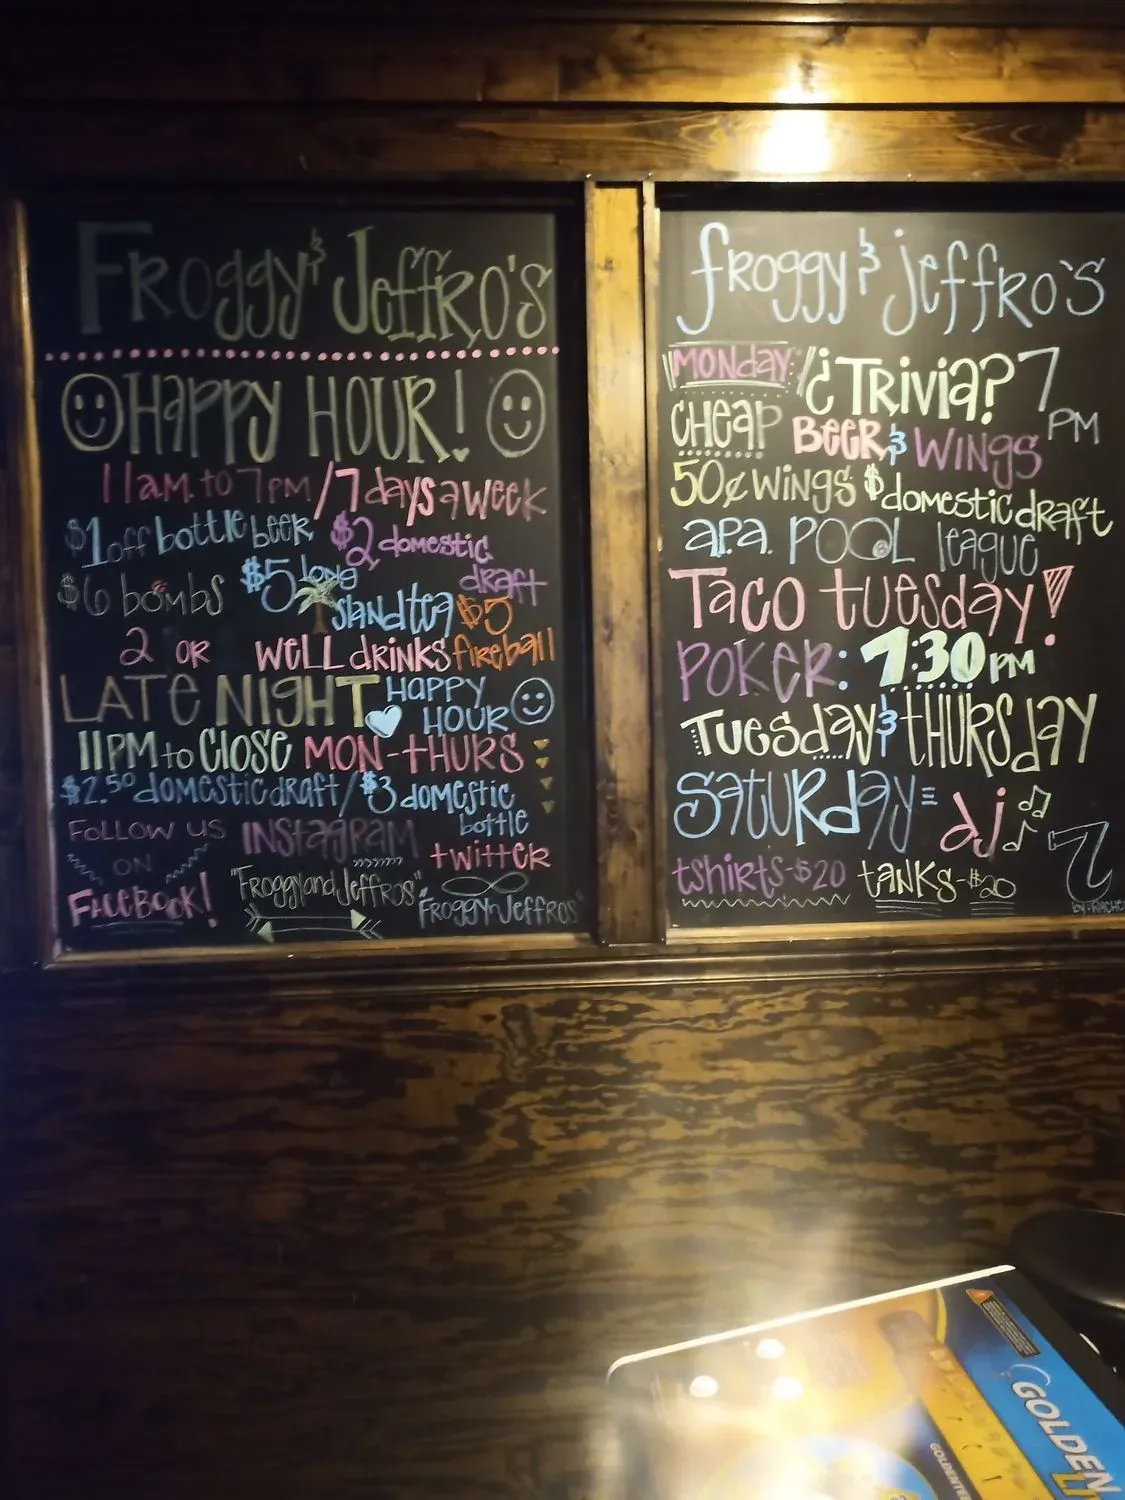 Froggy & Jeffro's
Happy HOUR!
11am to 7pm / 7 days a week
$1 off bottle beer $2 domestic draft
$6 bombs $5 long island tea $5 fireball
2 OR WELL drinks
LATE NIGHT HAPPY HOUR
11PM to Close MON-tHURS
$2.50 domestic draft / $3 domestic bottle
FoLLOW US ON
FACEBOOK!
INStagRAM
"FroggyandJeffros"
twitter
"FROGGYnJeffros"
fROGGY & jeffRo's
MONday: ¿TRivia? 7 PM
CHEAP BEER & WINGS
50¢ WINGS $ domestic draft
a.p.a. POOL league
Taco tuesday!
POKER: 7:30 PM
Tuesday & tHURSday
SatURday = dj
tshirts-$20 tANKS-$20
GOLDEN